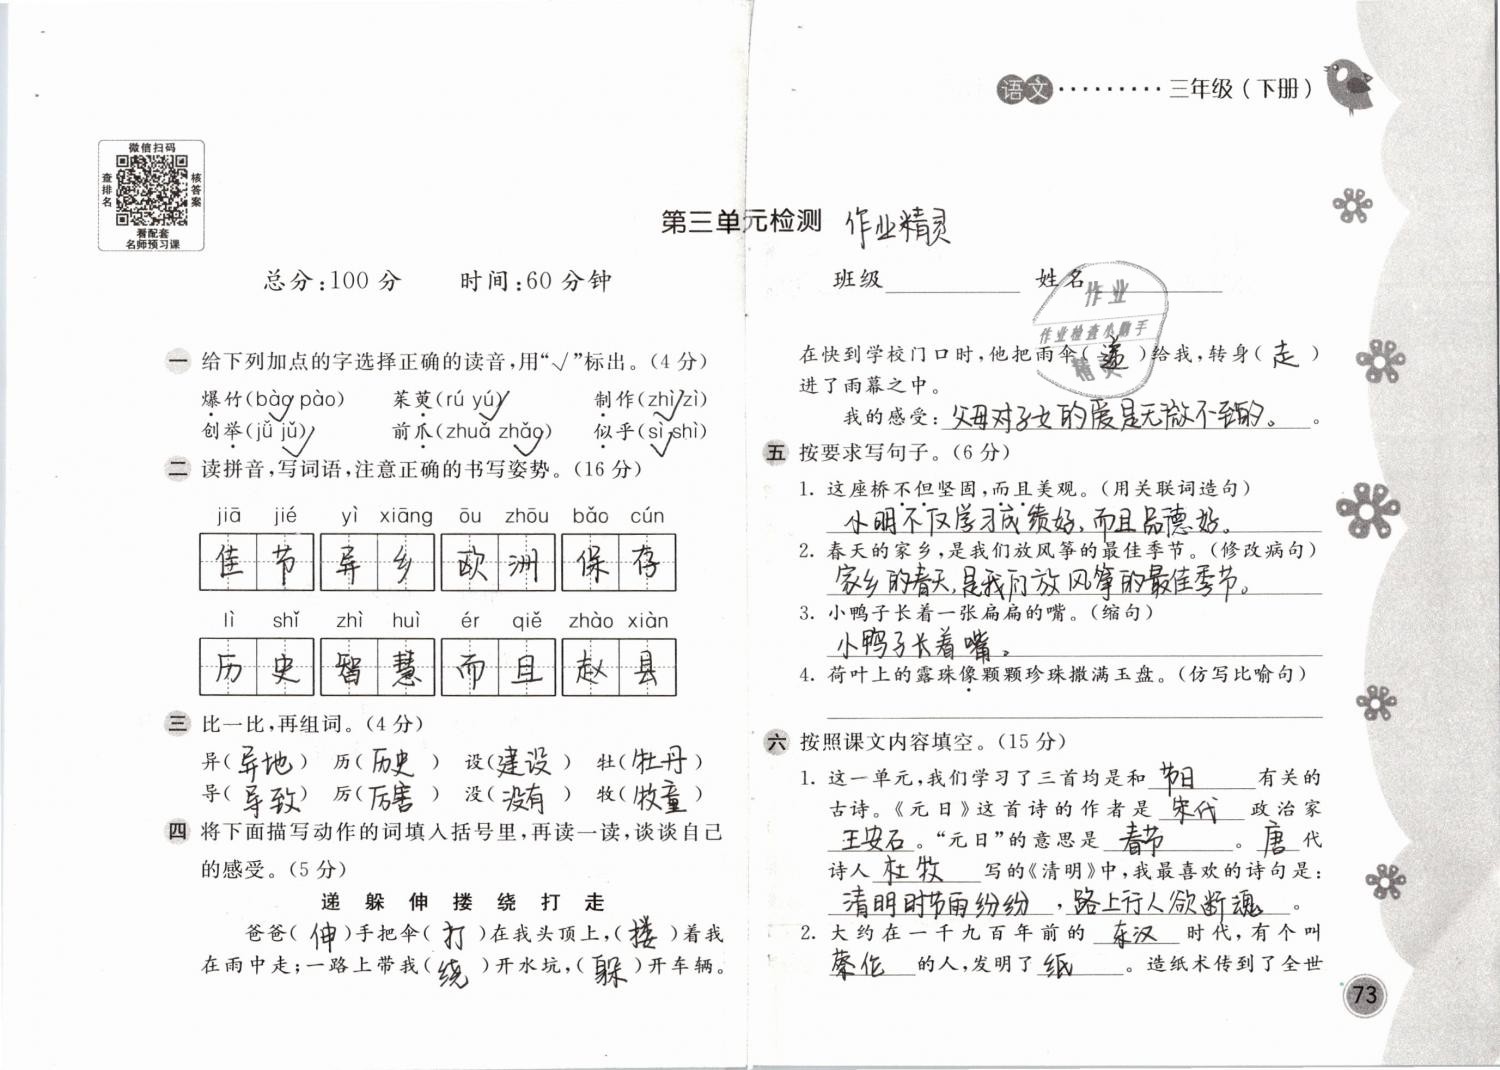 语文·········三年级(下册)
微信扫码
查排名
核答案
看配套
名师预习课
第三单元检测 作业精灵
总分:100分 时间:60分钟 班级 姓名
一 给下列加点的字选择正确的读音,用“√”标出。(4分)
爆竹(bào pào) 茱萸(rú yú) 制作(zhì zì)
创举(jǔ jǔ) 前爪(zhuǎ zhǎo) 似乎(sì shì)
二 读拼音,写词语,注意正确的书写姿势。(16分)
jiā jié yì xiāng ōu zhōu bǎo cún
佳节 异乡 欧洲 保存
lì shǐ zhì huì ér qiě zhào xiàn
历史 智慧 而且 赵县
三 比一比,再组词。(4分)
异(异地) 历(历史) 设(建设) 牡(牡丹)
导(导致) 厉(厉害) 没(没有) 牧(牧童)
四 将下面描写动作的词填入括号里,再读一读,谈谈自己
的感受。(5分)
递 躲 伸 搂 绕 打 走
爸爸(伸)手把伞(打)在我头顶上,(搂)着我
在雨中走;一路上带我(绕)开水坑,(躲)开车辆。
作业
作业检查小助手
精灵
在快到学校门口时,他把雨伞(递)给我,转身(走)
进了雨幕之中。
我的感受:父母对子女的爱是无微不至的。。
五 按要求写句子。(6分)
1. 这座桥不但坚固,而且美观。(用关联词造句)
小明不仅学习成绩好,而且品德好。
2. 春天的家乡,是我们放风筝的最佳季节。(修改病句)
家乡的春天,是我们放风筝的最佳季节。
3. 小鸭子长着一张扁扁的嘴。(缩句)
小鸭子长着嘴。
4. 荷叶上的露珠像颗颗珍珠撒满玉盘。(仿写比喻句)
六 按照课文内容填空。(15分)
1. 这一单元,我们学习了三首均是和 节日 有关的
古诗。《元日》这首诗的作者是 宋代 政治家
王安石。“元日”的意思是 春节 。唐 代
诗人 杜牧 写的《清明》中,我最喜欢的诗句是:
清明时节雨纷纷,路上行人欲断魂。
2. 大约在一千九百年前的 东汉 时代,有个叫
蔡伦 的人,发明了 纸 。造纸术传到了全世
73